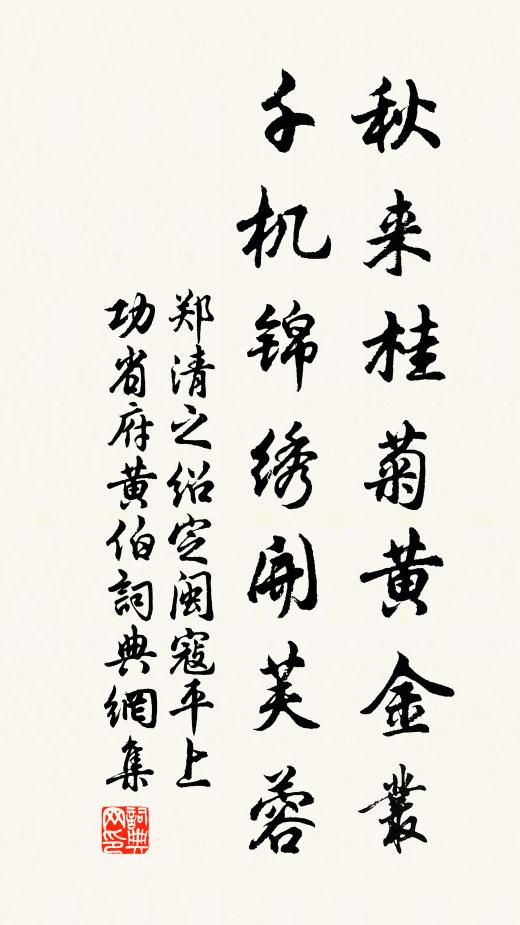 秋来桂菊黄金叢
千机锦绣開芙蓉
郑清之绍定闽寇平上
功省府黄伯詞典網集
詞典
网印